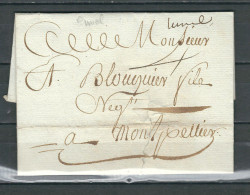 Lunel
Monsieur
A. Blouquier fils
Neg.t
a Montpellier